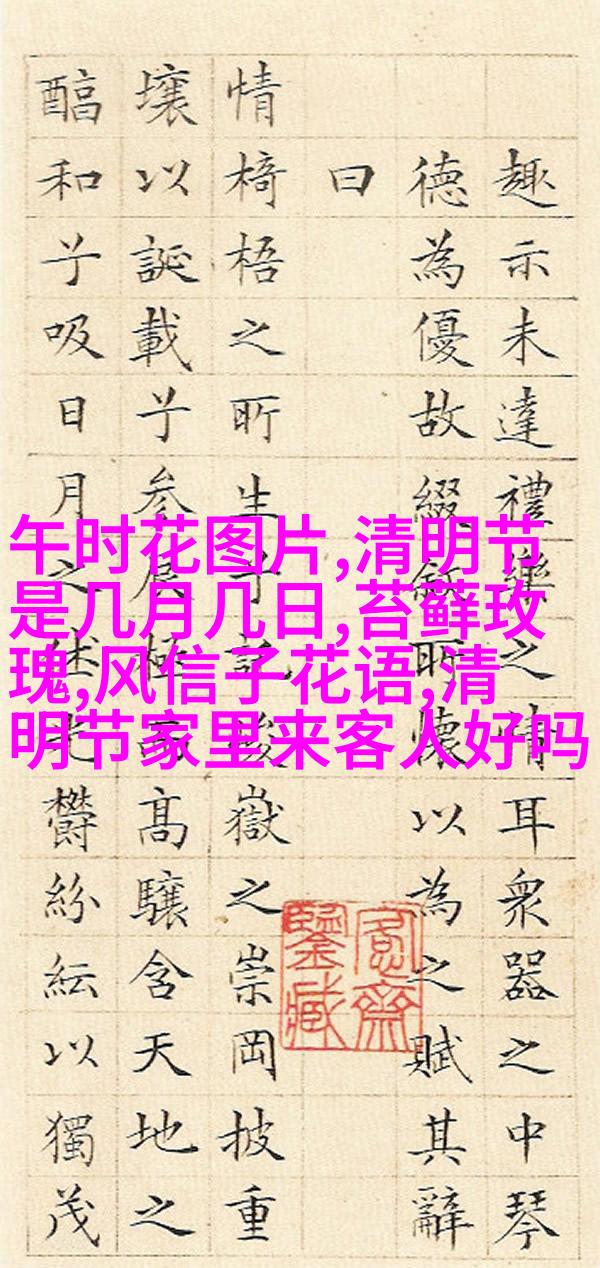 趣示未達禮樂之情耳衆器之中琴
德為優故綴敘所懷以為之賦其辭
曰
情椅梧之所生兮託峻嶽之崇岡披重
壤以誕載兮参辰極而高驤含天地之
醕和兮吸日月之休光鬱紛紜以獨茂
午时花图片,清明节
是几月几日,苔藓玫
瑰,风信子花语,清
明节家里来客人好吗
愙齋
鑒藏